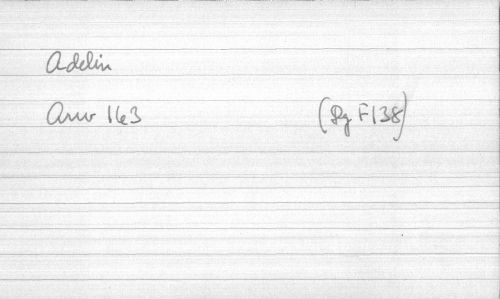 Adelin
Arw 163 (Pg F138)